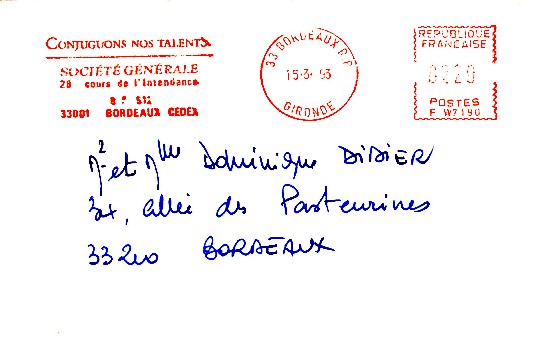 CONJUGUONS NOS TALENTS.
SOCIÉTÉ GÉNÉRALE
28 cours de l'Intendance
B P 512
33001 BORDEAUX CEDEX
33 BORDEAUX R.P
15-3- 93
GIRONDE
REPUBLIQUE
FRANCAISE
0220
POSTES
F W7190
et Dominique DIDIER
allée des Pasteurines
33200 BORDEAUX